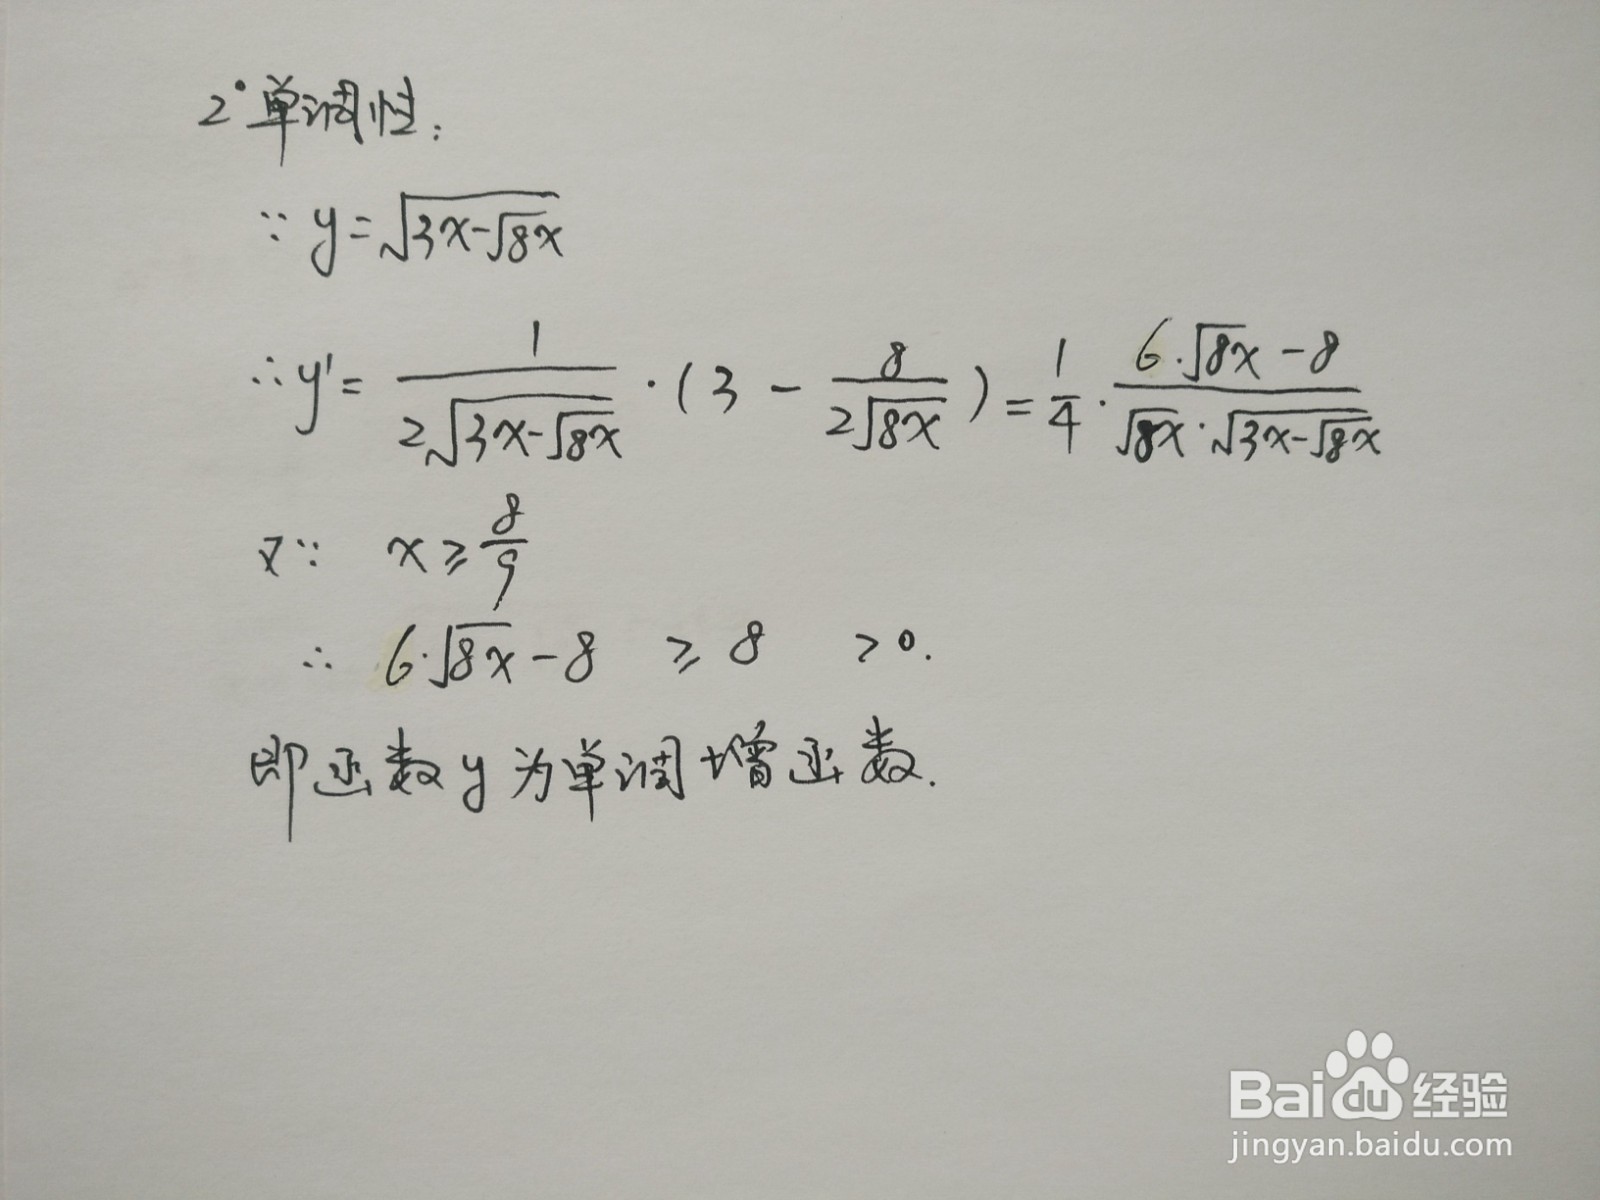 2°单调性:
∵ y=√(3x-√8x)
∴ y'= 1/(2√(3x-√8x)) · (3 - 8/(2√8x)) = 1/4 · (6·√8x - 8)/(√8x·√(3x-√8x))
又∵ x ≥ 8/9
∴ 6·√8x - 8 ≥ 8 >0.
即函数y为单调增函数.
Baidu经验
jingyan.baidu.com